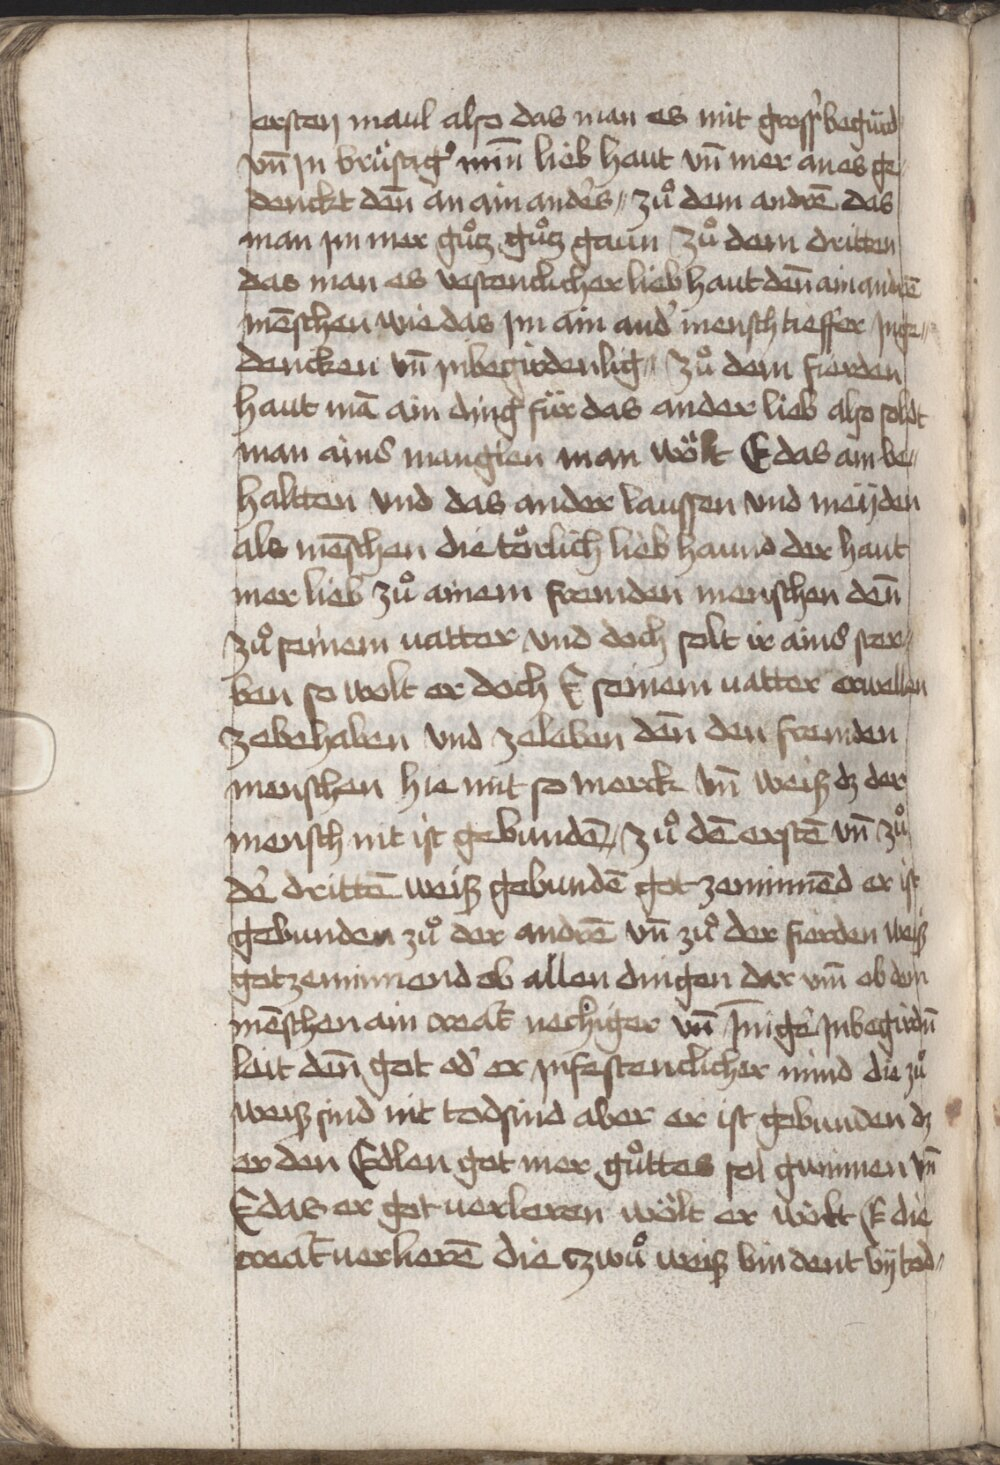 ersten maul also das man es mit grosser begird
vn̄ in brüstiger min̄ lieb haut vn̄ mer an es ge„
denckt den̄ an ain anders„ zů dem andrē das
man im mer gůtz gůtz gaun zů dem dritten
das man es vestenclicher lieb haut den̄ ain andrē
mēschen wie das im ain and' mensch tieffer in ge„
dencken vn̄ in begirden lig„ zů dem fierden
haut mā ain ding für das ander lieb also solt
man ains manglen man wölt E das ain be„
haltten vnd das ander laussen vnd meÿden
als mēschen die torlich lieb haund der haut
mer lieb zů ainem fremden menschen den̄
zů seinem uatter vnd doch solt ir ains ster„
ben so wolt er doch E seinem uatter erwellen
zebehaben vnd zeleben den̄ den fremden
menschen hie mit so merck vn̄ weiß dz der
mensch nit ist gebundē„ zů dē erstē vn̄ zů
de' drittē weiß gebundē got zeminnēd er ist
gebunden zů der andrē vn̄ zů der fierden weiß
got zeminnend ob allen dingen dar vm̄ ob dem
mēschen ain creat' nechiger vn̄ in̄ige' in begirdn̄
leit den̄ got od' er in festenclicher mind die zů
weiß sind nit todsind aber er ist gebunden dz
er den Edlen got mer gůttes sol gunnen vn̄
E das er got uerlieren wölt er wölt E die
creat' uerlierē die zwů weiß bindent bÿ tod„